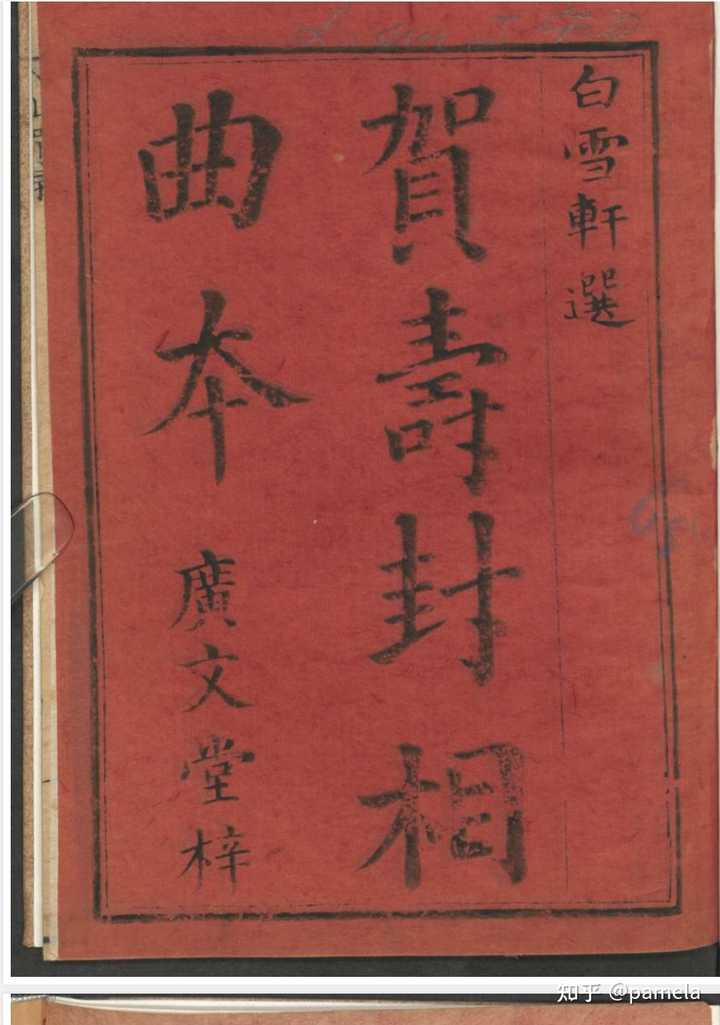 白雪軒選
賀壽封相
曲本
廣文堂梓
知乎 @pamela